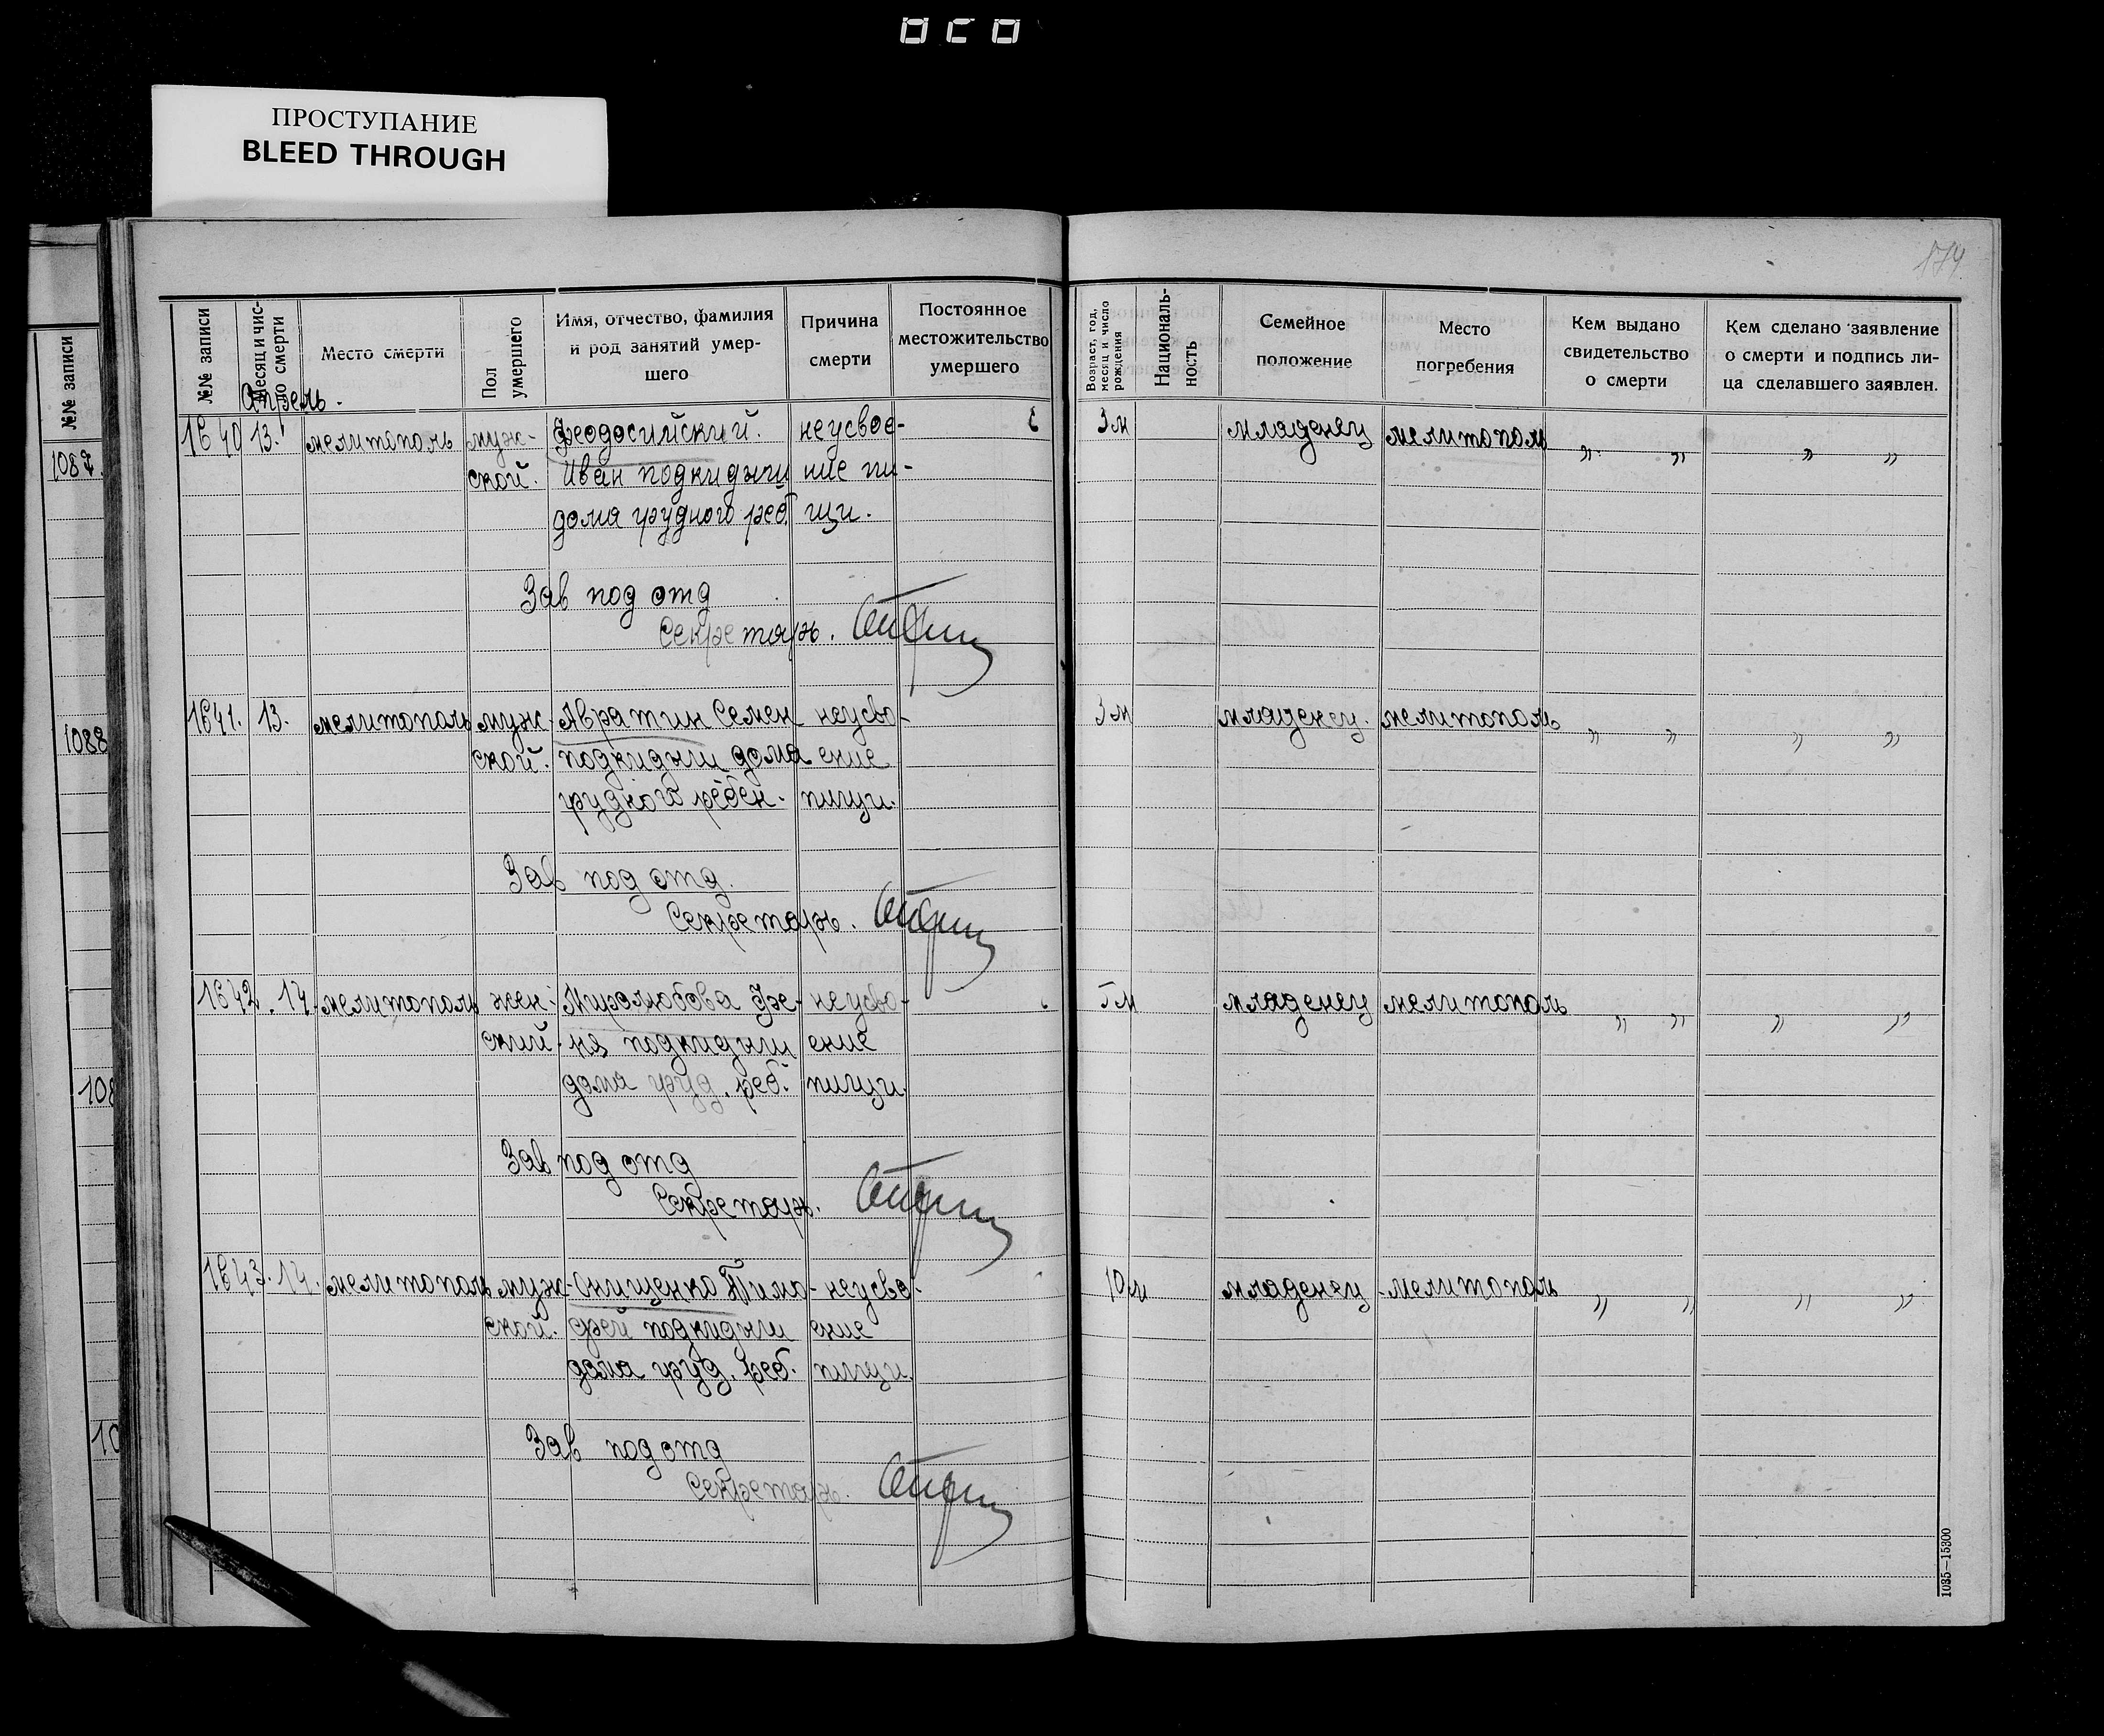 ПРОСТУПАНИЕ
BLEED THROUGH
174
№№ записи
№№ записи
Месяц и чис-
ло смерти
Место смерти
Пол
умершего
Имя, отчество, фамилия
и род занятий умер-
шего
Причина
смерти
Постоянное
местожительство
умершего
Возраст, год,
месяц и число
рождения
Националь-
ность
Семейное
положение
Место
погребения
Кем выдано
свидетельство
о смерти
Кем сделано заявление
о смерти и подпись ли-
ца сделавшего заявлен.
Апрель.
1087.
1640 13. мелитополь муж- Феодосийский. неусвое- 3м младенец мелитополь „ „ „ „
ской. Иван подкидыш ние пи-
дома грудного реб. щи.
Зав под отд
Секретарь.
1088
1641. 13. мелитополь муж- Авратин Семен неусво- 3м младенец. мелитополь „ „ „ „
ской. подкидыш дома ение
грудного ребен. пищи.
Зав под отд.
Секретарь.
1642. 14. мелитополь жен- Миролюбова Фе- неусво- 5м младенец мелитополь „ „ „ „
ский. на подкидыш ение
108 дома груд. реб. пищи.
Зав под отд
Секретарь.
1643. 14. мелитополь муж- Онищенко Тимо- неусво- 10м младенец мелитополь „ „ „ „
ской. фей подкидыш ение
дома груд. реб. пищи.
10
Зав под отд
Секретарь.
1035—15300